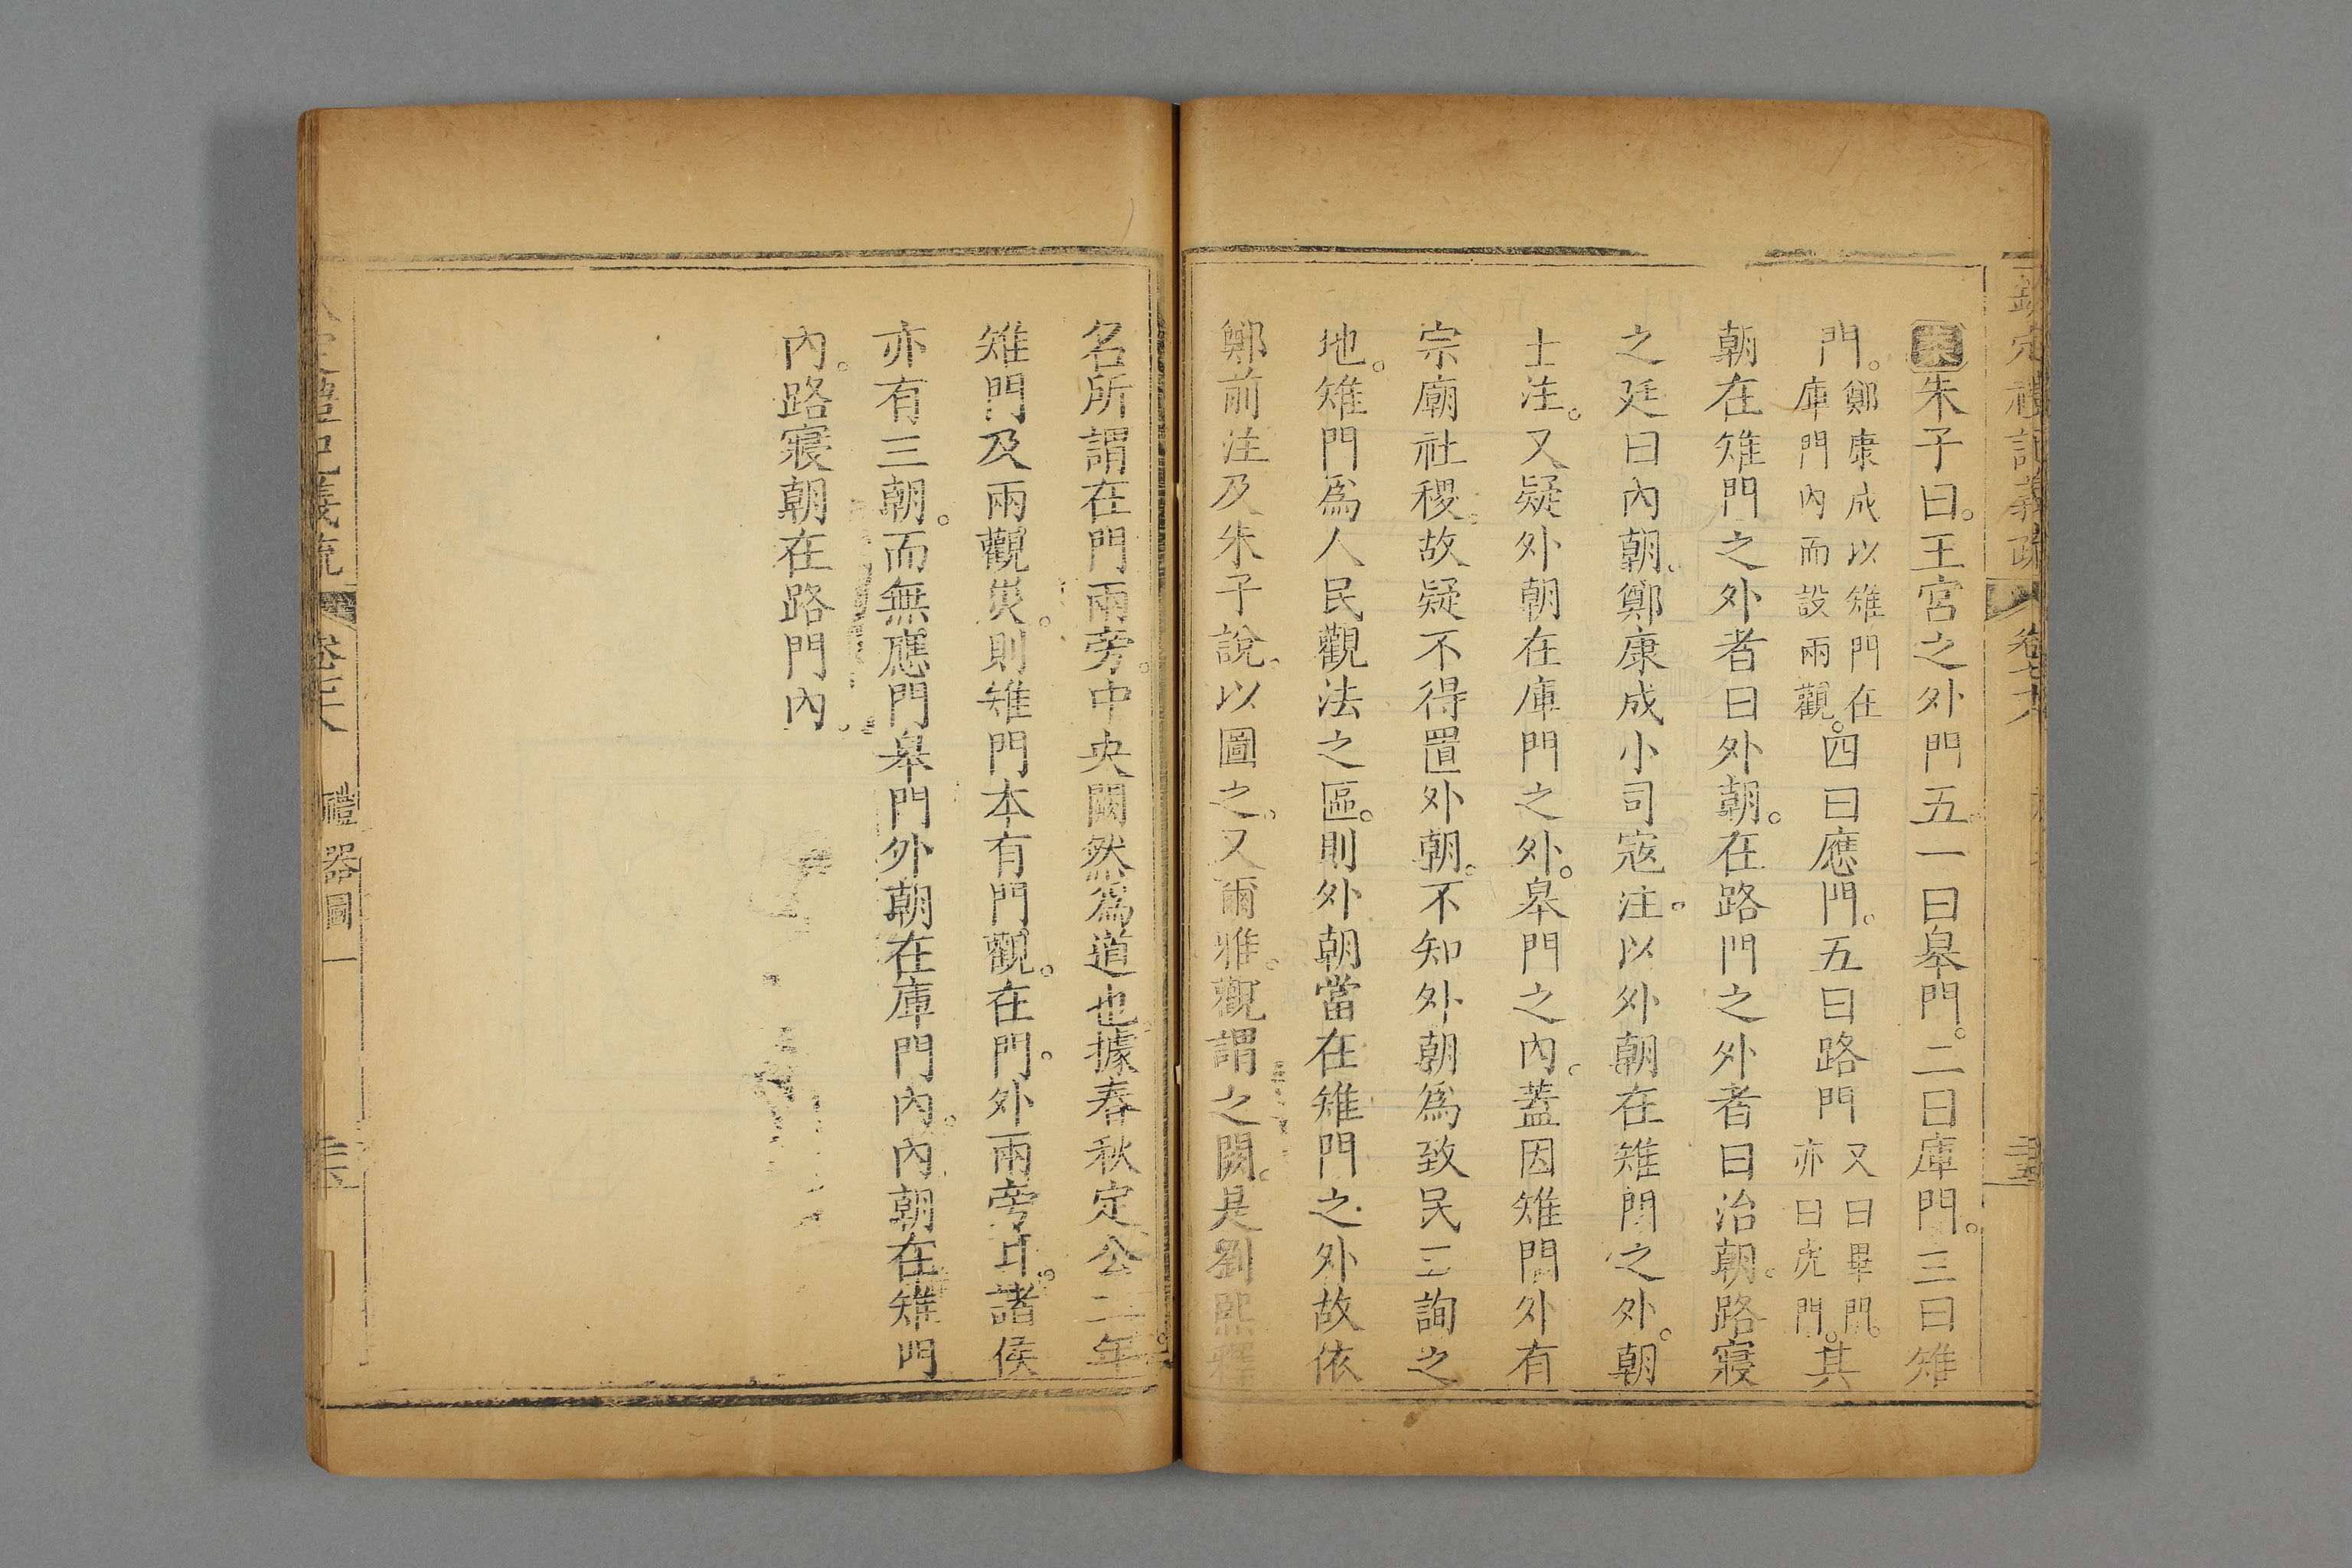 欽定禮記義疏 卷七十八
案朱子曰。王宮之外門五。一曰皋門。二曰庫門。三曰雉
門。鄭康成以雉門在庫門內而設兩觀。四曰應門。五曰路門又曰畢門。亦曰虎門。其
朝在雉門之外者曰外朝。在路門之外者曰治朝。路寢
之廷曰內朝。鄭康成小司寇注。以外朝在雉門之外。朝
士注。又疑外朝在庫門之外。皋門之內。蓋因雉門外有
宗廟社稷。故疑不得置外朝。不知外朝爲致民三詢之
地。雉門爲人民觀法之區。則外朝當在雉門之外故依
鄭前注及朱子說。以圖之。又爾雅。觀謂之闕。是劉熙釋
名所謂在門兩旁。中央闕然爲道也。據春秋定公二年。
雉門及兩觀災。則雉門本有門觀。在門。外兩旁耳。諸侯
亦有三朝。而無應門皋門外朝在庫門內。內朝在雉門
內。路寢朝在路門內。
禮記義疏 禮器圖一